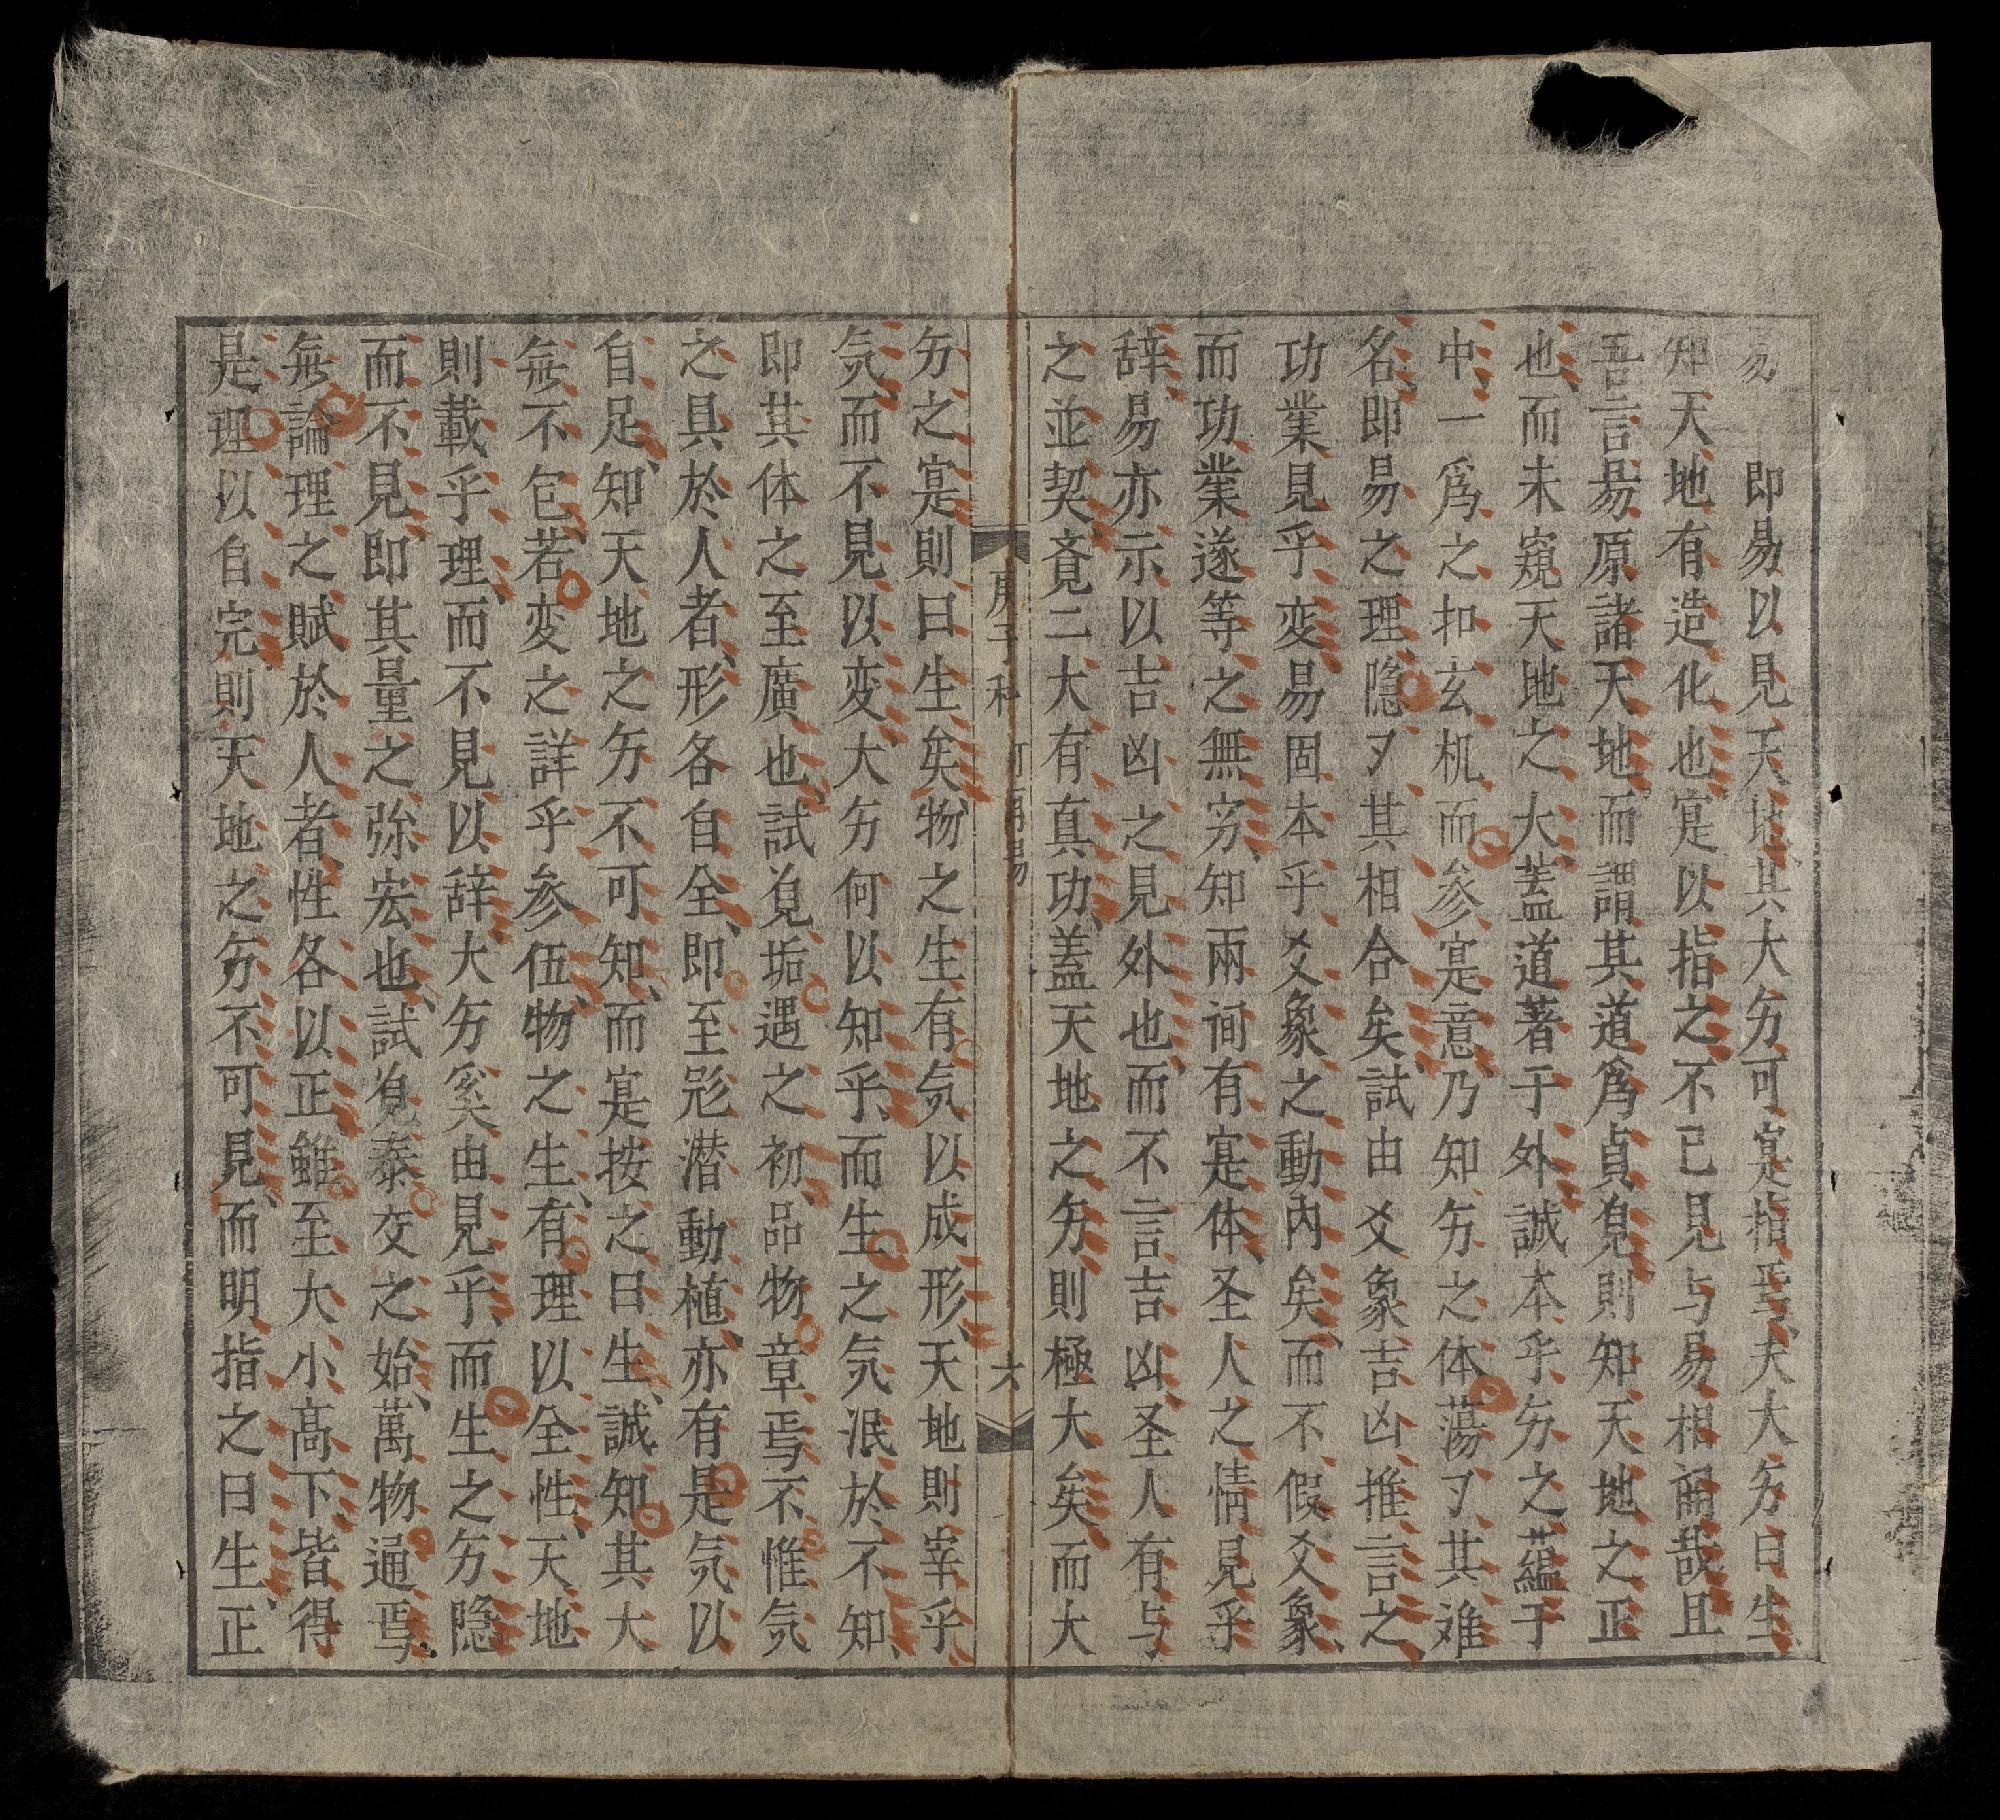 易　即易以見天地其大㫄可寔指焉夫大㫄曰生
知天地有造化也寔以指之不已見与易相詶哉且
吾言易原諸天地而謂其道爲貞夐則知天地之正
也而未窺天地之大蓋道著于外誠本乎㫄之蘊于
中一爲之扣玄机而參寔意乃知㫄之体蕩刃其难
名即易之理隐刃其相合矣試由爻象吉凶推言之
功業見乎変易固本乎爻象之動內矣而不假爻象
而功業遂等之無穷知兩间有寔体圣人之情見乎
辞易亦示以吉凶之見外也而不言吉凶圣人有与
之並契斍二大有真功蓋天地之㫄則極大矣而大
㫄之寔則曰生矣物之生有気以成形天地則宰乎
気而不見以变大㫄何以知乎而生之気泯於不知
即其体之至廣也試夐垢遇之初品物章焉不惟気
之具於人者形各自全即至彫潜動植亦有是気以
自足知天地之㫄不可知而寔按之曰生誠知其大
無不包若変之詳乎参伍物之生有理以全性天地
則載乎理而不見以辞大㫄奚由見乎而生之㫄隐
而不見即其量之弥宏也試夐泰交之始萬物通焉
無論理之賦於人者性各以正雖至大小高下皆得
是理以自完則天地之㫄不可見而明指之曰生正
庚子科　可見易　六